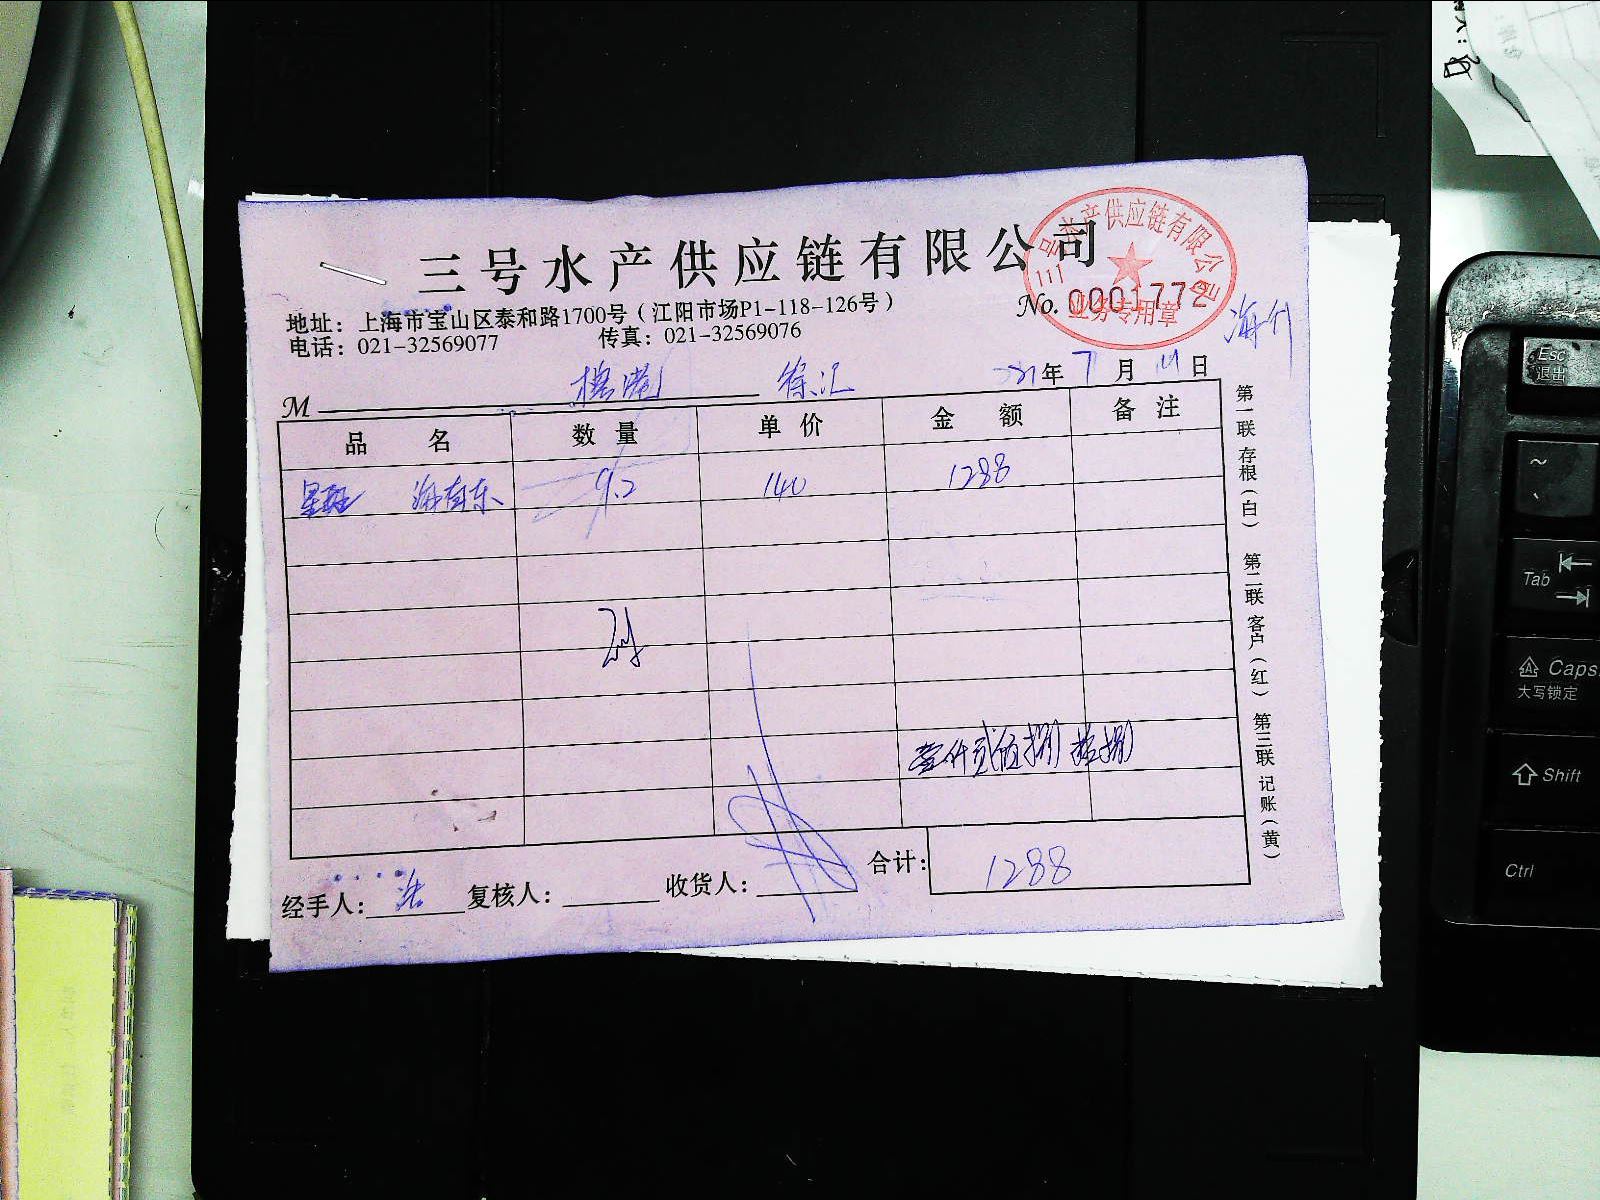 三号水产供应链有限公司
三号水产供应链有限公司
业务专用章
地址：上海市宝山区泰和路1700号（江阳市场P1-118-126号）
No. 0001772
电话：021-32569077 传真：021-32569076
M 徐汇 年 7 月 日
品名 数量 单价 金额 备注
星斑 9.2 140 1288
壹仟贰佰捌拾捌
合计： 1288
经手人： 复核人： 收货人：
第一联 存根（白） 第二联 客户（红） 第三联 记账（黄）
Esc
退出
~
、
Tab
Caps
大写锁定
Shift
Ctrl